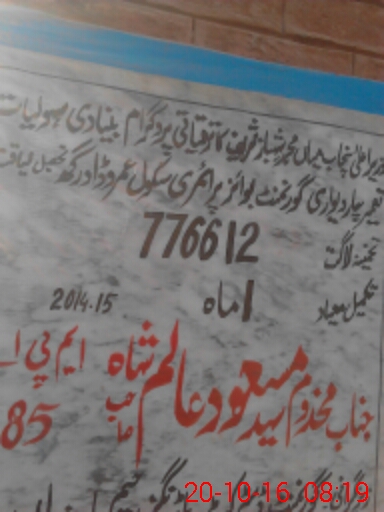 وزیر اعلیٰ پنجاب میاں محمد شہباز شریف کا ترقیاتی پروگرام بنیادی سہولیات
تعمیر چار دیواری گورنمنٹ بوائز پرائمری سکول عمر وڈا در گٹھ تحصیل لیاقت
تخمینہ لاگت 776612
تکمیل میعاد 1 ماہ 2014.15
جناب مخدوم سید مسعود عالم شاہ صاحب ایم پی اے
85
زیر نگرانی گورنمنٹ
20-10-16 08:19